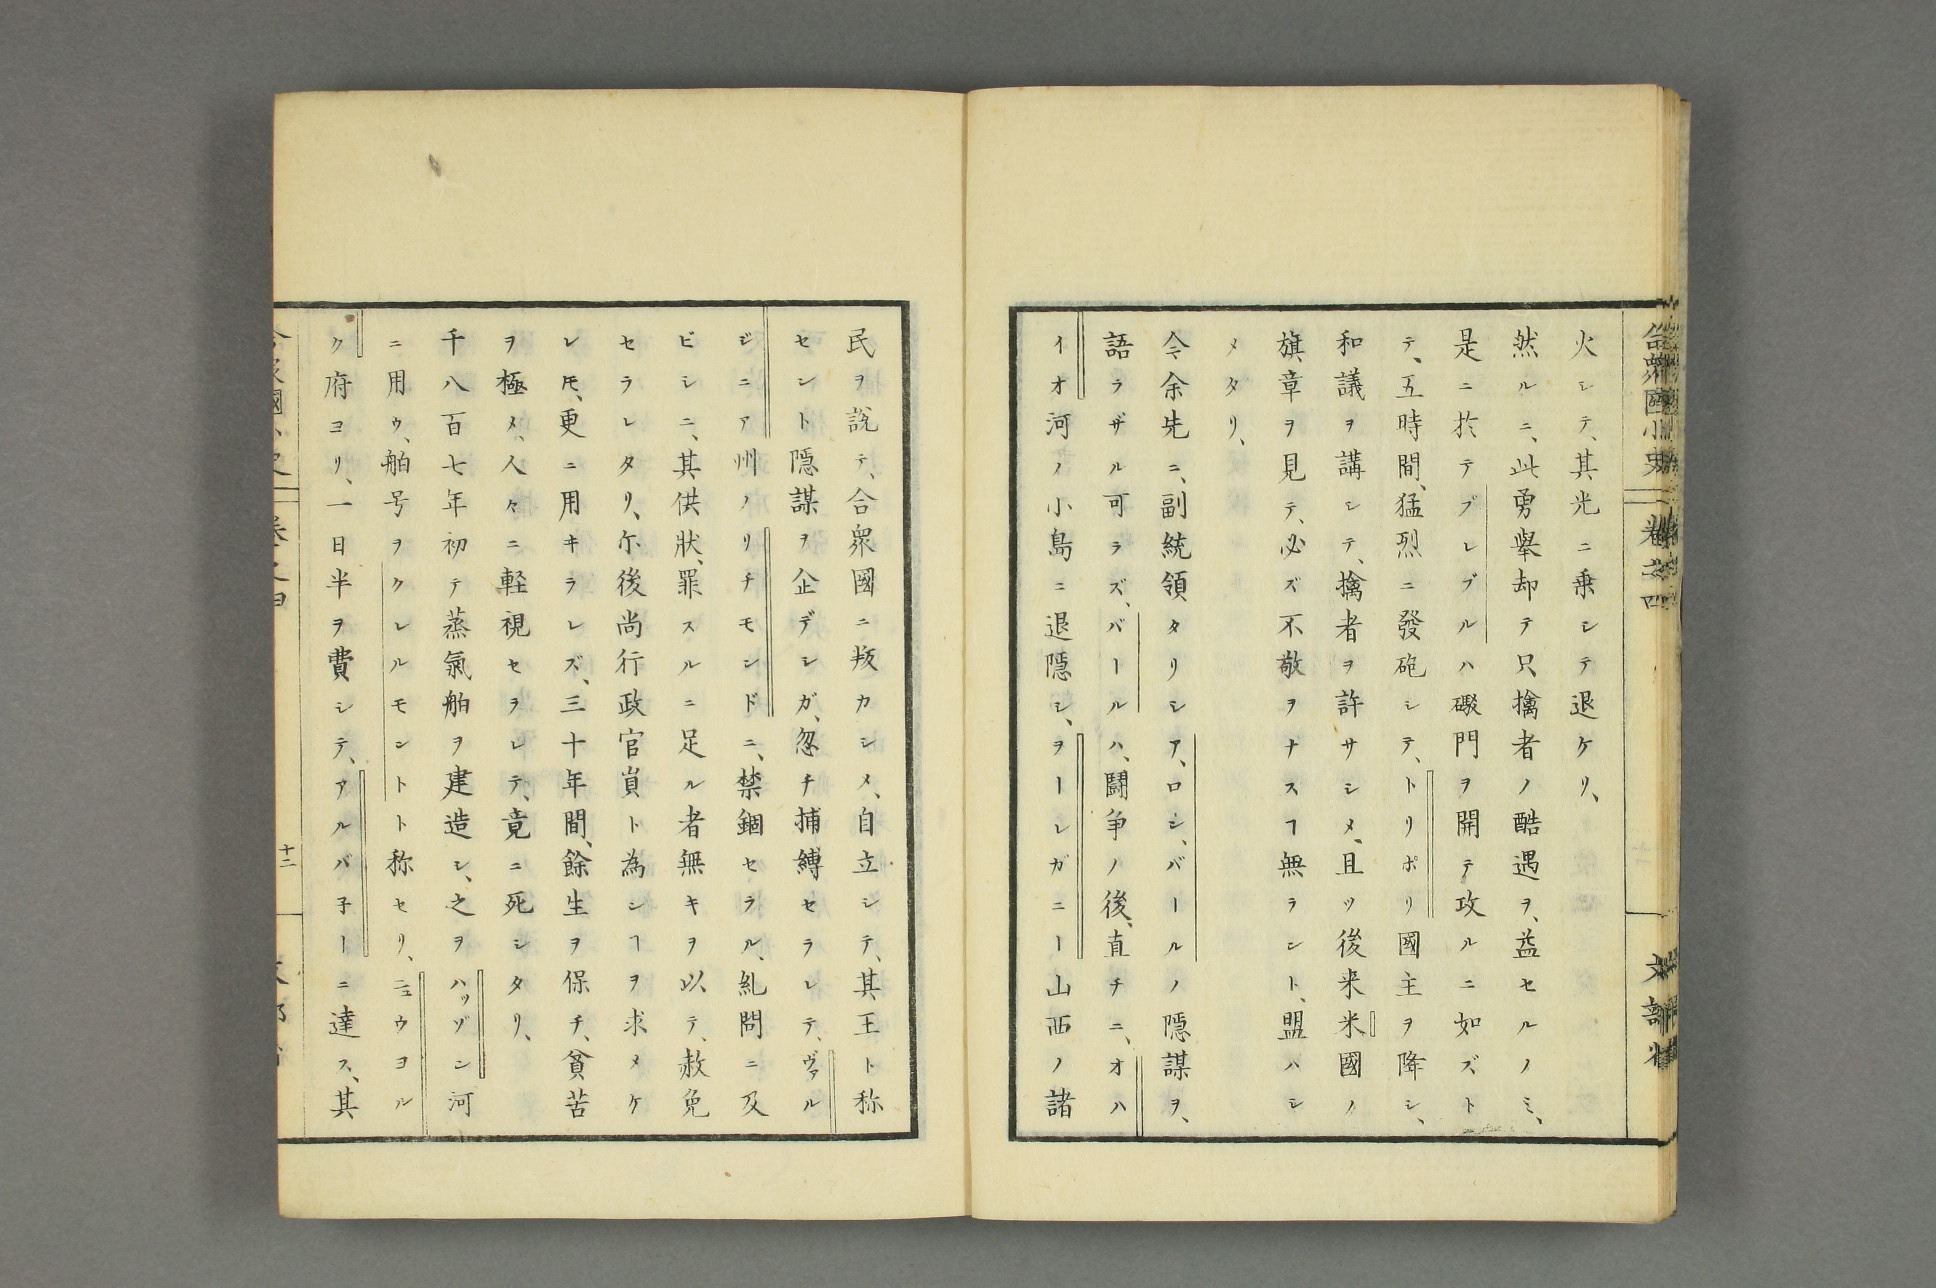 火シテ、其光ニ乗シテ退ケリ、
然ルニ、此勇擧却テ只擒者ノ酷遇ヲ、益セルノミ、
是ニ於テブレブルハ礟門ヲ開テ攻ルニ如ズト
テ、五時間、猛烈ニ發砲シテ、トリポリ國主ヲ降シ、
和議ヲ講シテ、擒者ヲ許サシメ、且ツ後来米國ノ
旗章ヲ見テ、必ズ不敬ヲナスヿ無ラント、盟ハシ
メタリ、
今余先ニ、副統領タリシア、ロン、バールノ隠謀ヲ、
語ラザル可ラズ、バールハ、鬪争ノ後、直チニ、オハ
イオ河ノ小島ニ退隠シ、ヲーレガニー山西ノ諸
合衆國小史 卷之四
文部省
民ヲ説テ、合衆國ニ叛カシメ、自立シテ、其王ト称
セント隠謀ヲ企デシガ、忽チ捕縛セラレテ、ヴァル
ジニア州ノリチモンドニ、禁錮セラル、糺問ニ及
ビシニ、其供状、罪スルニ足ル者無キヲ以テ、赦免
セラレタリ、尓後尚行政官員ト為ンヿヲ求メケ
レ𪜈、更ニ用ヰラレズ、三十年間、餘生ヲ保チ、貧苦
ヲ極メ、人々ニ軽視セヲレテ、竟ニ死シタリ、
千八百七年初テ蒸氣舶ヲ建造シ、之ヲハッゾン河
ニ用ウ、舶号ヲクレルモントト称セリ、ニュウヨル
ク府ヨリ、一日半ヲ費シテ、アルバ子ーニ達ス、其
十二